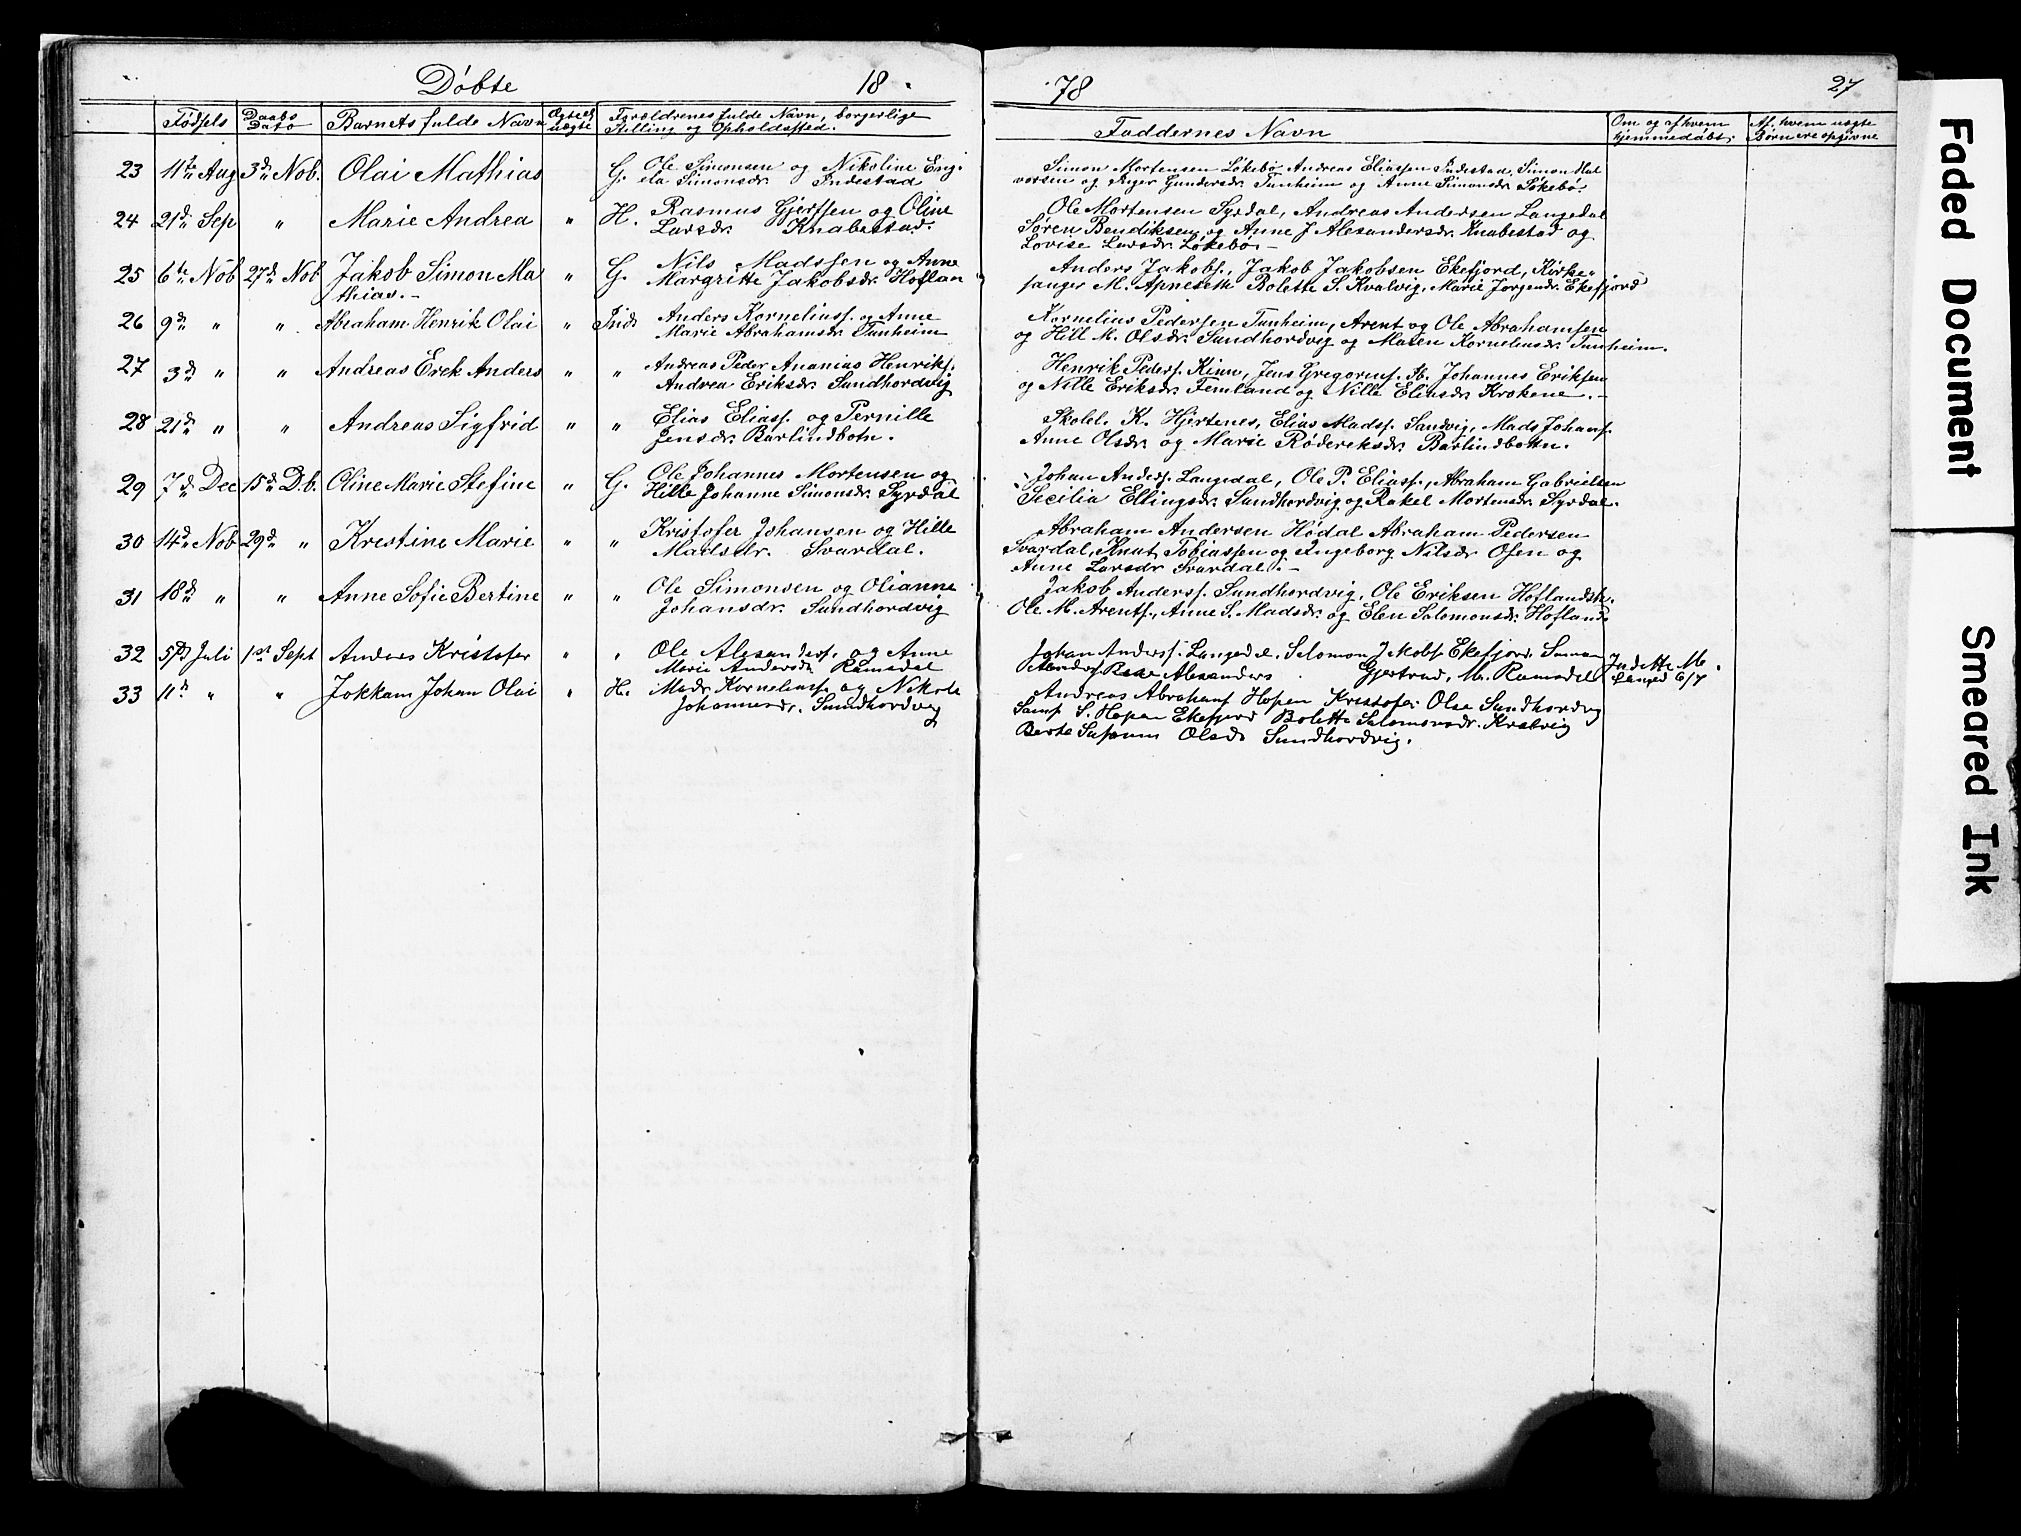 Døbte 18
78 27
Fødsels Daabs Dato Barnets fulde Navn Ægte el. uægte Forældrenes fulde Navn, borgerlige Stilling og Opholdssted.
Faddernes Navn Om og af hvem hjemmedøbt. Af hvem uægte Børn ere opgivne
23 11te Aug 3de Nob. Olai Mathias G. Ole Simonsen og Nikoline Eng
ela Simonsdr. Indestad
Simon Mortensen Løkebø Andreas Eliassen Indestad, Simon Hal
vorsen og Gundersdr. Tunheim og Anne Simonsdr. Løkebø.
24 21de Sep " Marie Andrea " H. Rasmus Gjertsen og Oline
Larsdr. Knabestad.
Ole Mortensen Syrdal, Andreas Andersen Langedal
Søren Bendiksen og Anne J Alexandersdr. Knabestad og
Lovise Larsdr. Løkebø.
25 6te Nob 27de Nob Jakob Simon Ma
thias. " G. Nils Madssen og Anne
Margritte Jakobsdr. Hoflan
Anders Jakobs., Jakob Jakobsen Ekefjord, Kirke-
sanger M. Apneseth Bolette S. Kvalvig, Marie Jørgensdr. Ekefjord
26 9de " " Abraham Henrik Olai " Ind. Anders Korneliuss. og Anne
Marie Abrahamsdr. Tunheim
Kornelius Pedersen Tunheim, Arent og Ole Abrahamsen
og Hill M. Olsdr. Sundhordvig og Maren Korneliusdr. Tunheim.
27 3de " " Andreas Erek Anders " " Andreas Peder Ananias Henriks.
Andrea Eriksdr. Sundhordvig
Henrik Peders. Kinn, Jens Gregoriuss. Johannes Eriksen
og Nille Eriksdr. Femland og Nille Eliasdr. Krokene.
28 21de " " Andreas Sigfrid " " Elias Eliass. og Pernille
Jensdr. Barlindbotn.
Skolel. K. Hjertenes, Elias Madss. Sandvig, Mads Johans.
Anne Olsdr. og Marie Røderiksdr. Barlindbotn.
29 7de Dec 15de D.b. Oline Marie Stefine " G. Ole Johannes Mortensen og
Hille Johanne Simonsdr. Syrdal
Johan Anders. Langedal, Ole P. Eliass., Abraham Gabrielsen
Secilia Ellingsdr. Sundhordvig og Rakel Mortensdr. Syrdal.
30 14de Nob 29de " Krestine Marie " " Kristofer Johansen og Hille
Madsdr. Svardal.
Abraham Andersen Hødal Abraham Pedersen
Svardal, Knut Tobiassen og Ingeborg Nilsdr. Osen og
Anne Larsdr Svardal.
31 18de " " Anne Sofie Bertine " " Ole Simonsen og Olianne
Johansdr. Sundhordvig
Jakob Anderss. Sundhordvig, Ole Eriksen
Ole M. Arents., Anne S. Madsdr. og Elen Salomonsdr. Hofland
32 5te Juli 1st Sept Anders Kristofer " " Ole Alexanders. og Anne
Marie Andersdr. Ramsdal
Johan Anderss. Langedal, Salomon Jakobs. Ekefjord
Alexanders Gjertrud, M. Ramsdal
6/7
33 11te " " Jokkam Johan Olai " H. Mads Korneliuss. og Nikole
Johannesdr. Sundhordvig
Andreas Abrahams Hopen Kristofer Olse Sundhordvig
S. Hopen Ekefjord Bolette Salomonsdr. Kvalvig
Berte Susann Olsdr Sundhordvig.
Faded Document
Smeared Ink